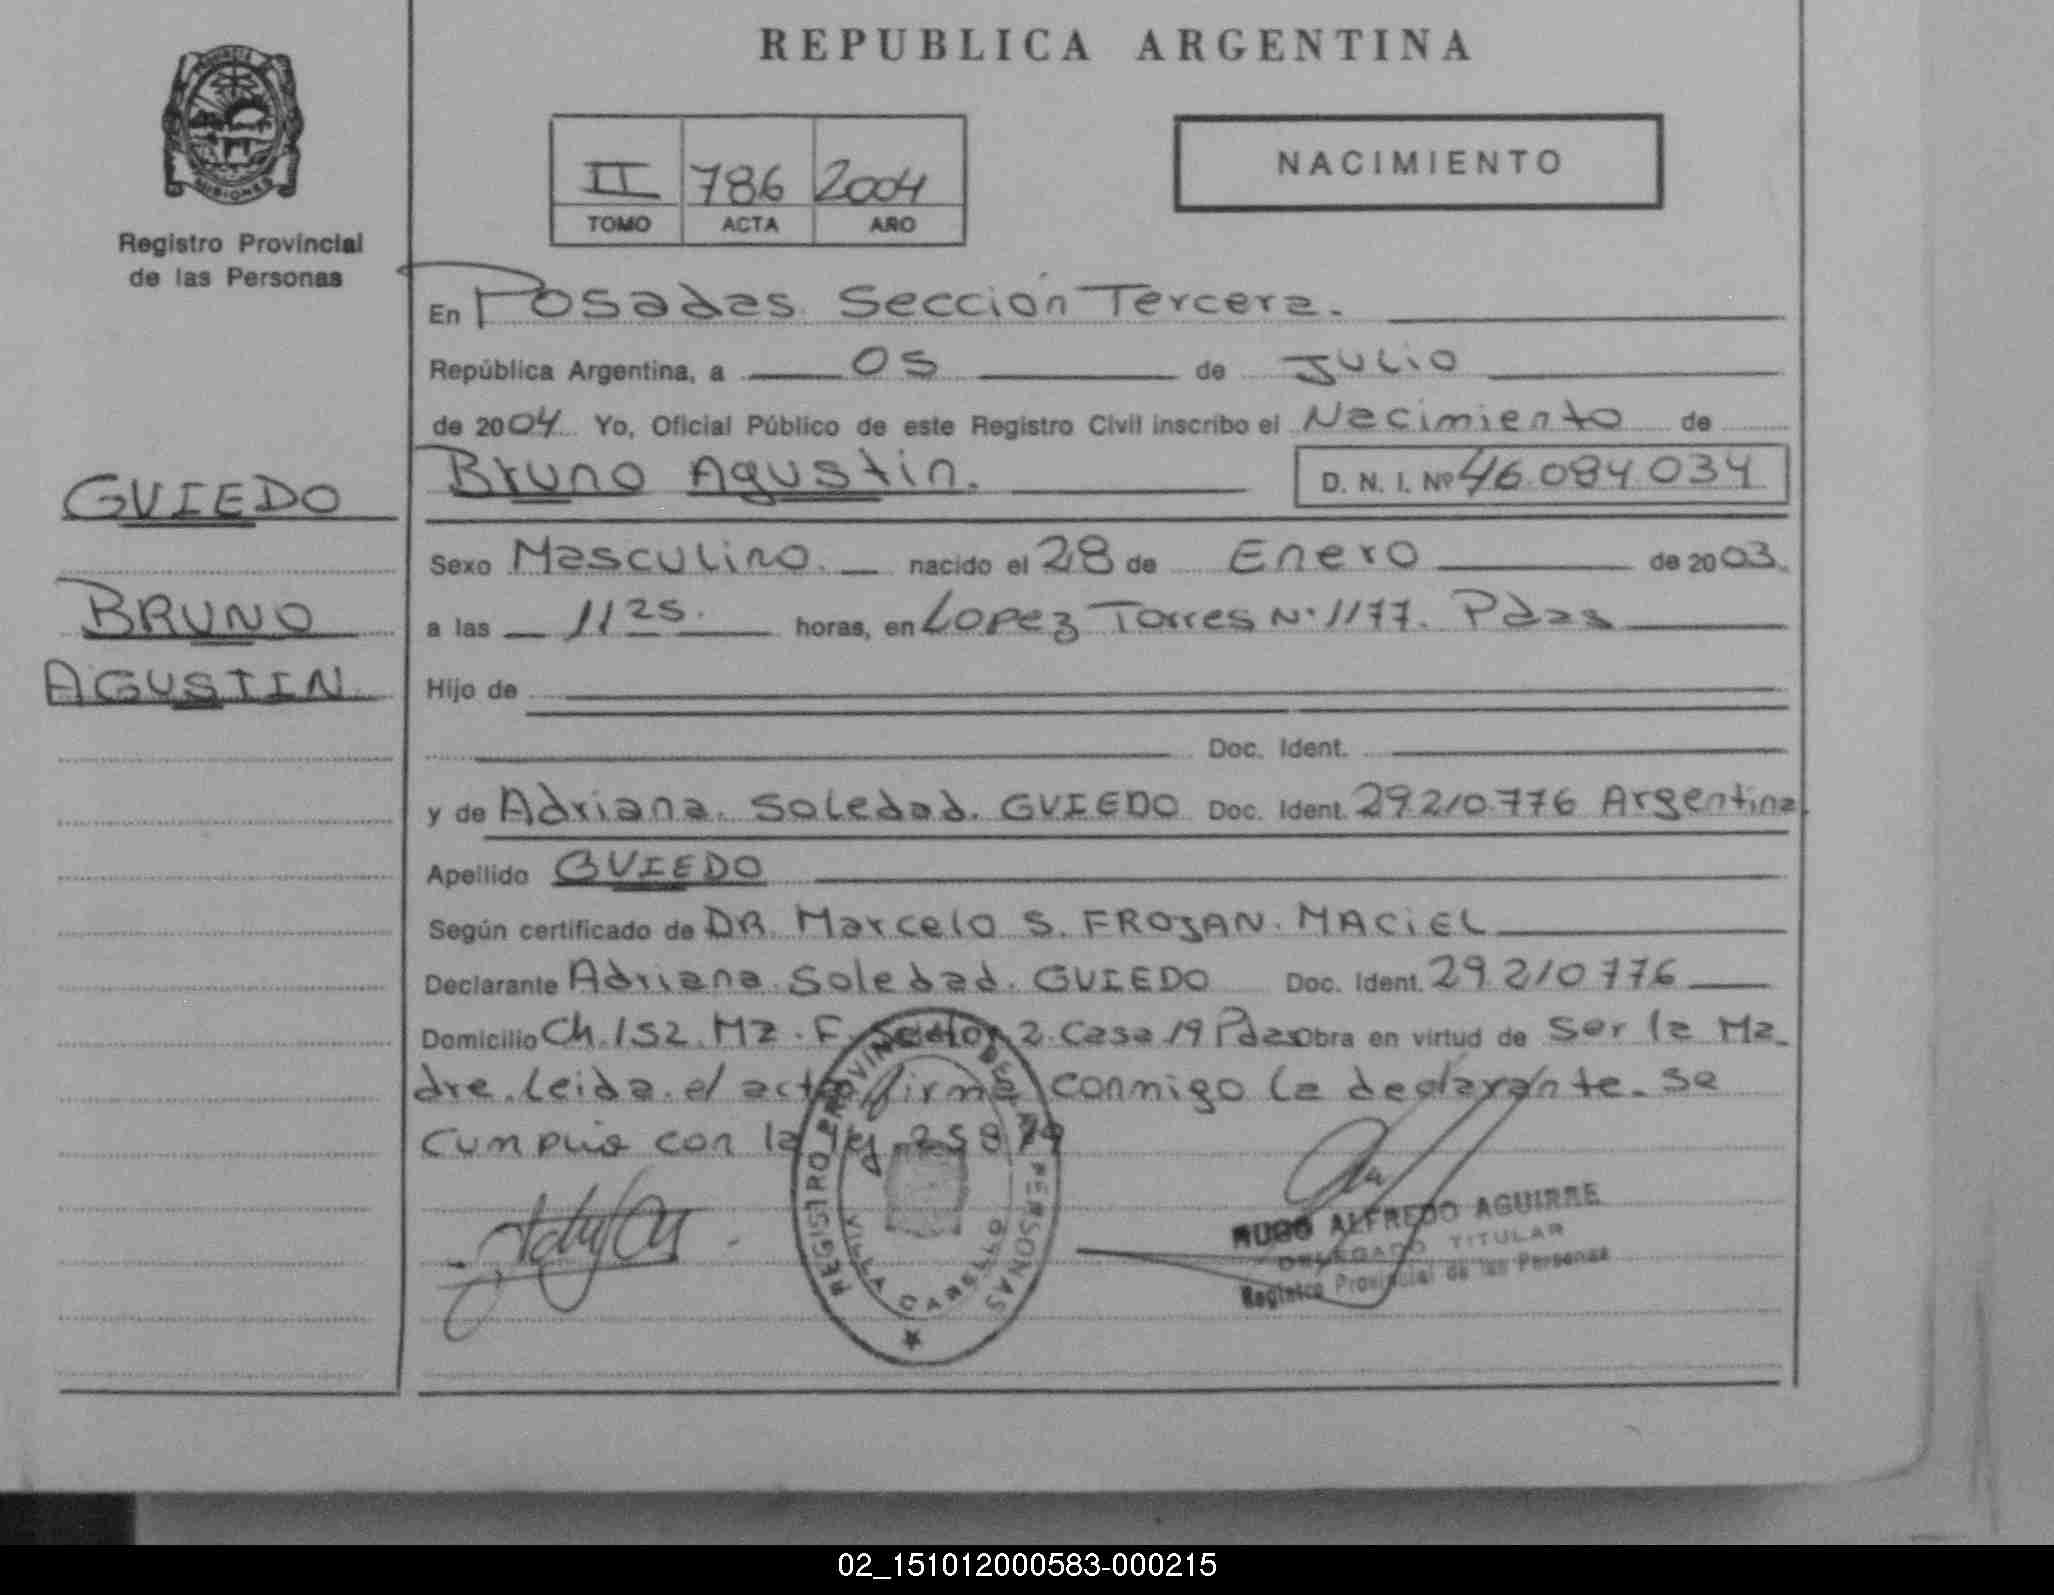 REPUBLICA ARGENTINA
PROVINCIA DE MISIONES
Registro Provincial
de las Personas
II 786 2004
TOMO ACTA AÑO
NACIMIENTO
En Posadas Sección Tercera.
República Argentina, a 05 de Julio
de 2004 Yo, Oficial Público de este Registro Civil inscribo el Nacimiento de
Bruno Agustin. D. N. I. Nº 46.084.034
GVIEDO
BRUNO
AGUSTIN
Sexo Masculino. nacido el 28 de Enero de 2003.
a las 11 25. horas, en Lopez Torres Nº 1177. Pdas
Hijo de
Doc. Ident.
y de Adriana Soledad GVIEDO Doc. Ident. 29.210.776 Argentina.
Apellido GVIEDO
Según certificado de DR. Marcelo S. FROJAN. MACIEL
Declarante Adriana Soledad. GVIEDO Doc. Ident. 29.210.776
Domicilio Ch. 152. Mz. F. Sector 2. Casa 19 Pdas Obra en virtud de Ser la Ma-
dre. Leida el acta firma conmigo la declarante. Se
Cumplio con la ley 258
REGISTRO PROVINCIAL DE LAS PERSONAS
VILLA CABELLO
HUGO ALFREDO AGUIRRE
DELEGADO TITULAR
Registro Provincial de las Personas
02_151012000583-000215